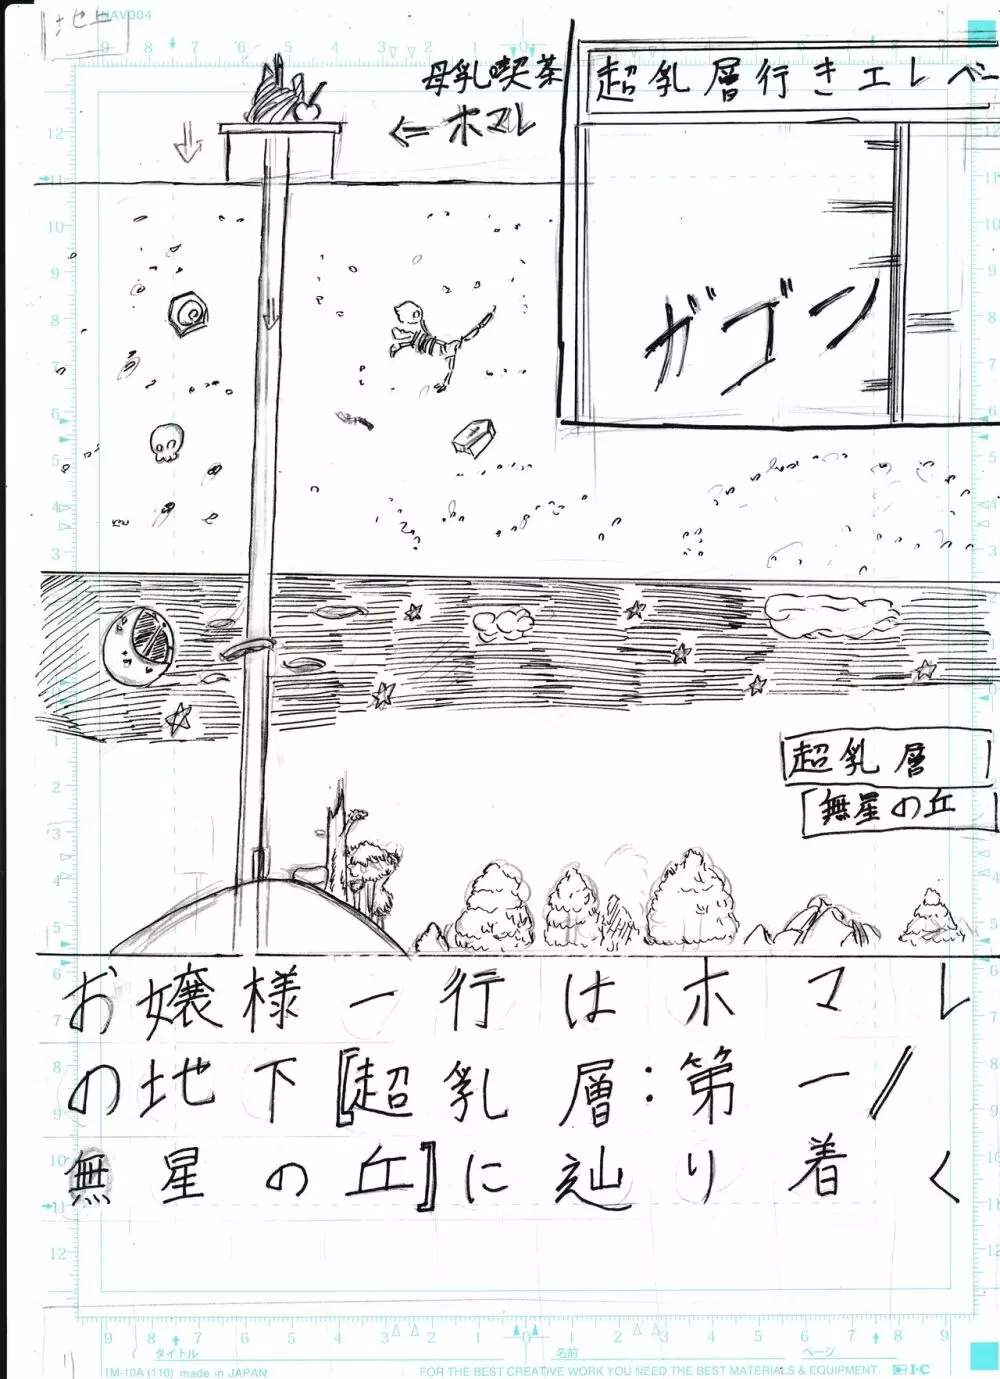 地上
NAV004
母乳喫茶
←ホマレ
超乳層行きエレベー
ガゴン
超乳層
無星の丘
お嬢様一行はホマレ
の地下『超乳層:第一/
無星の丘』に辿り着く
タイトル
名前
ページ
IM-10A (110) made in JAPAN
FOR THE BEST CREATIVE WORK YOU NEED THE BEST MATERIALS & EQUIPMENT.
I·C